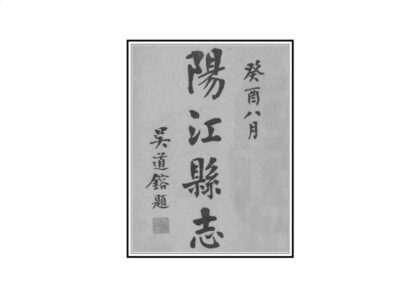 癸酉八月
陽江縣志
吳道鎔題